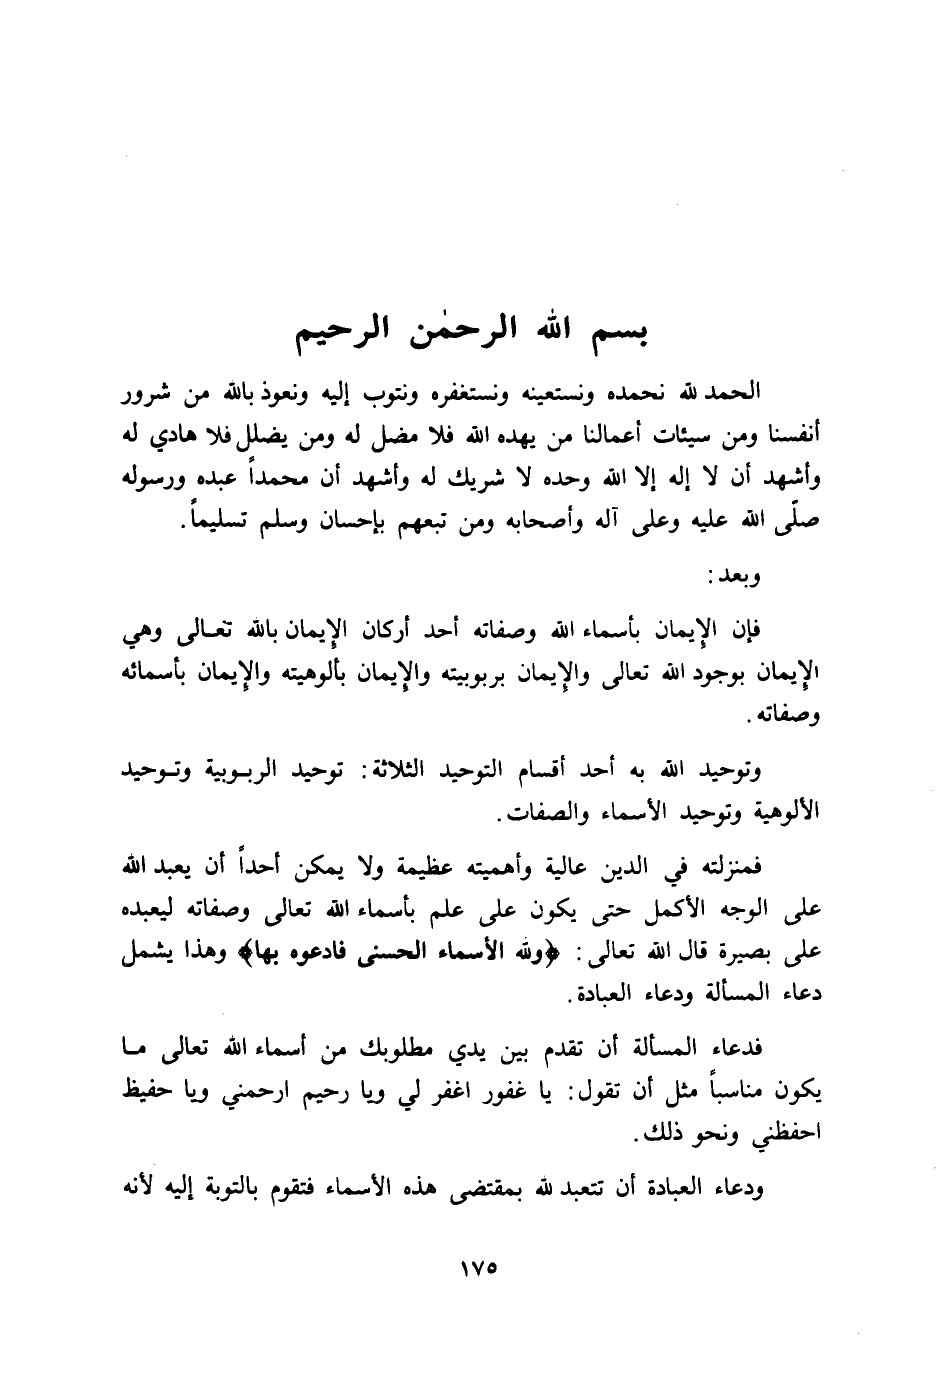 بسم الله الرحمٰن الرحيم
الحمد لله نحمده ونستعينه ونستغفره ونتوب إليه ونعوذ بالله من شرور
أنفسنا ومن سيئات أعمالنا من يهده الله فلا مضل له ومن يضلل فلا هادي له
وأشهد أن لا إله إلا الله وحده لا شريك له وأشهد أن محمداً عبده ورسوله
صلّى الله عليه وعلى آله وأصحابه ومن تبعهم بإحسان وسلم تسليماً.
وبعد:
فإن الإيمان بأسماء الله وصفاته أحد أركان الإيمان بالله تعـالى وهي
الإيمان بوجود الله تعالى والإيمان بربوبيته والإيمان بألوهيته والإيمان بأسمائه
وصفاته.
وتوحيد الله به أحد أقسام التوحيد الثلاثة: توحيد الربـوبية وتـوحيد
الألوهية وتوحيد الأسماء والصفات.
فمنزلته في الدين عالية وأهميته عظيمة ولا يمكن أحداً أن يعبد الله
على الوجه الأكمل حتى يكون على علم بأسماء الله تعالى وصفاته ليعبده
على بصيرة قال الله تعالى: ﴿ولله الأسماء الحسنى فادعوه بها﴾ وهذا يشمل
دعاء المسألة ودعاء العبادة.
فدعاء المسألة أن تقدم بين يدي مطلوبك من أسماء الله تعالى مـا
يكون مناسباً مثل أن تقول: يا غفور اغفر لي ويا رحيم ارحمني ويا حفيظ
احفظني ونحو ذلك.
ودعاء العبادة أن تتعبد لله بمقتضى هذه الأسماء فتقوم بالتوبة إليه لأنه
١٧٥